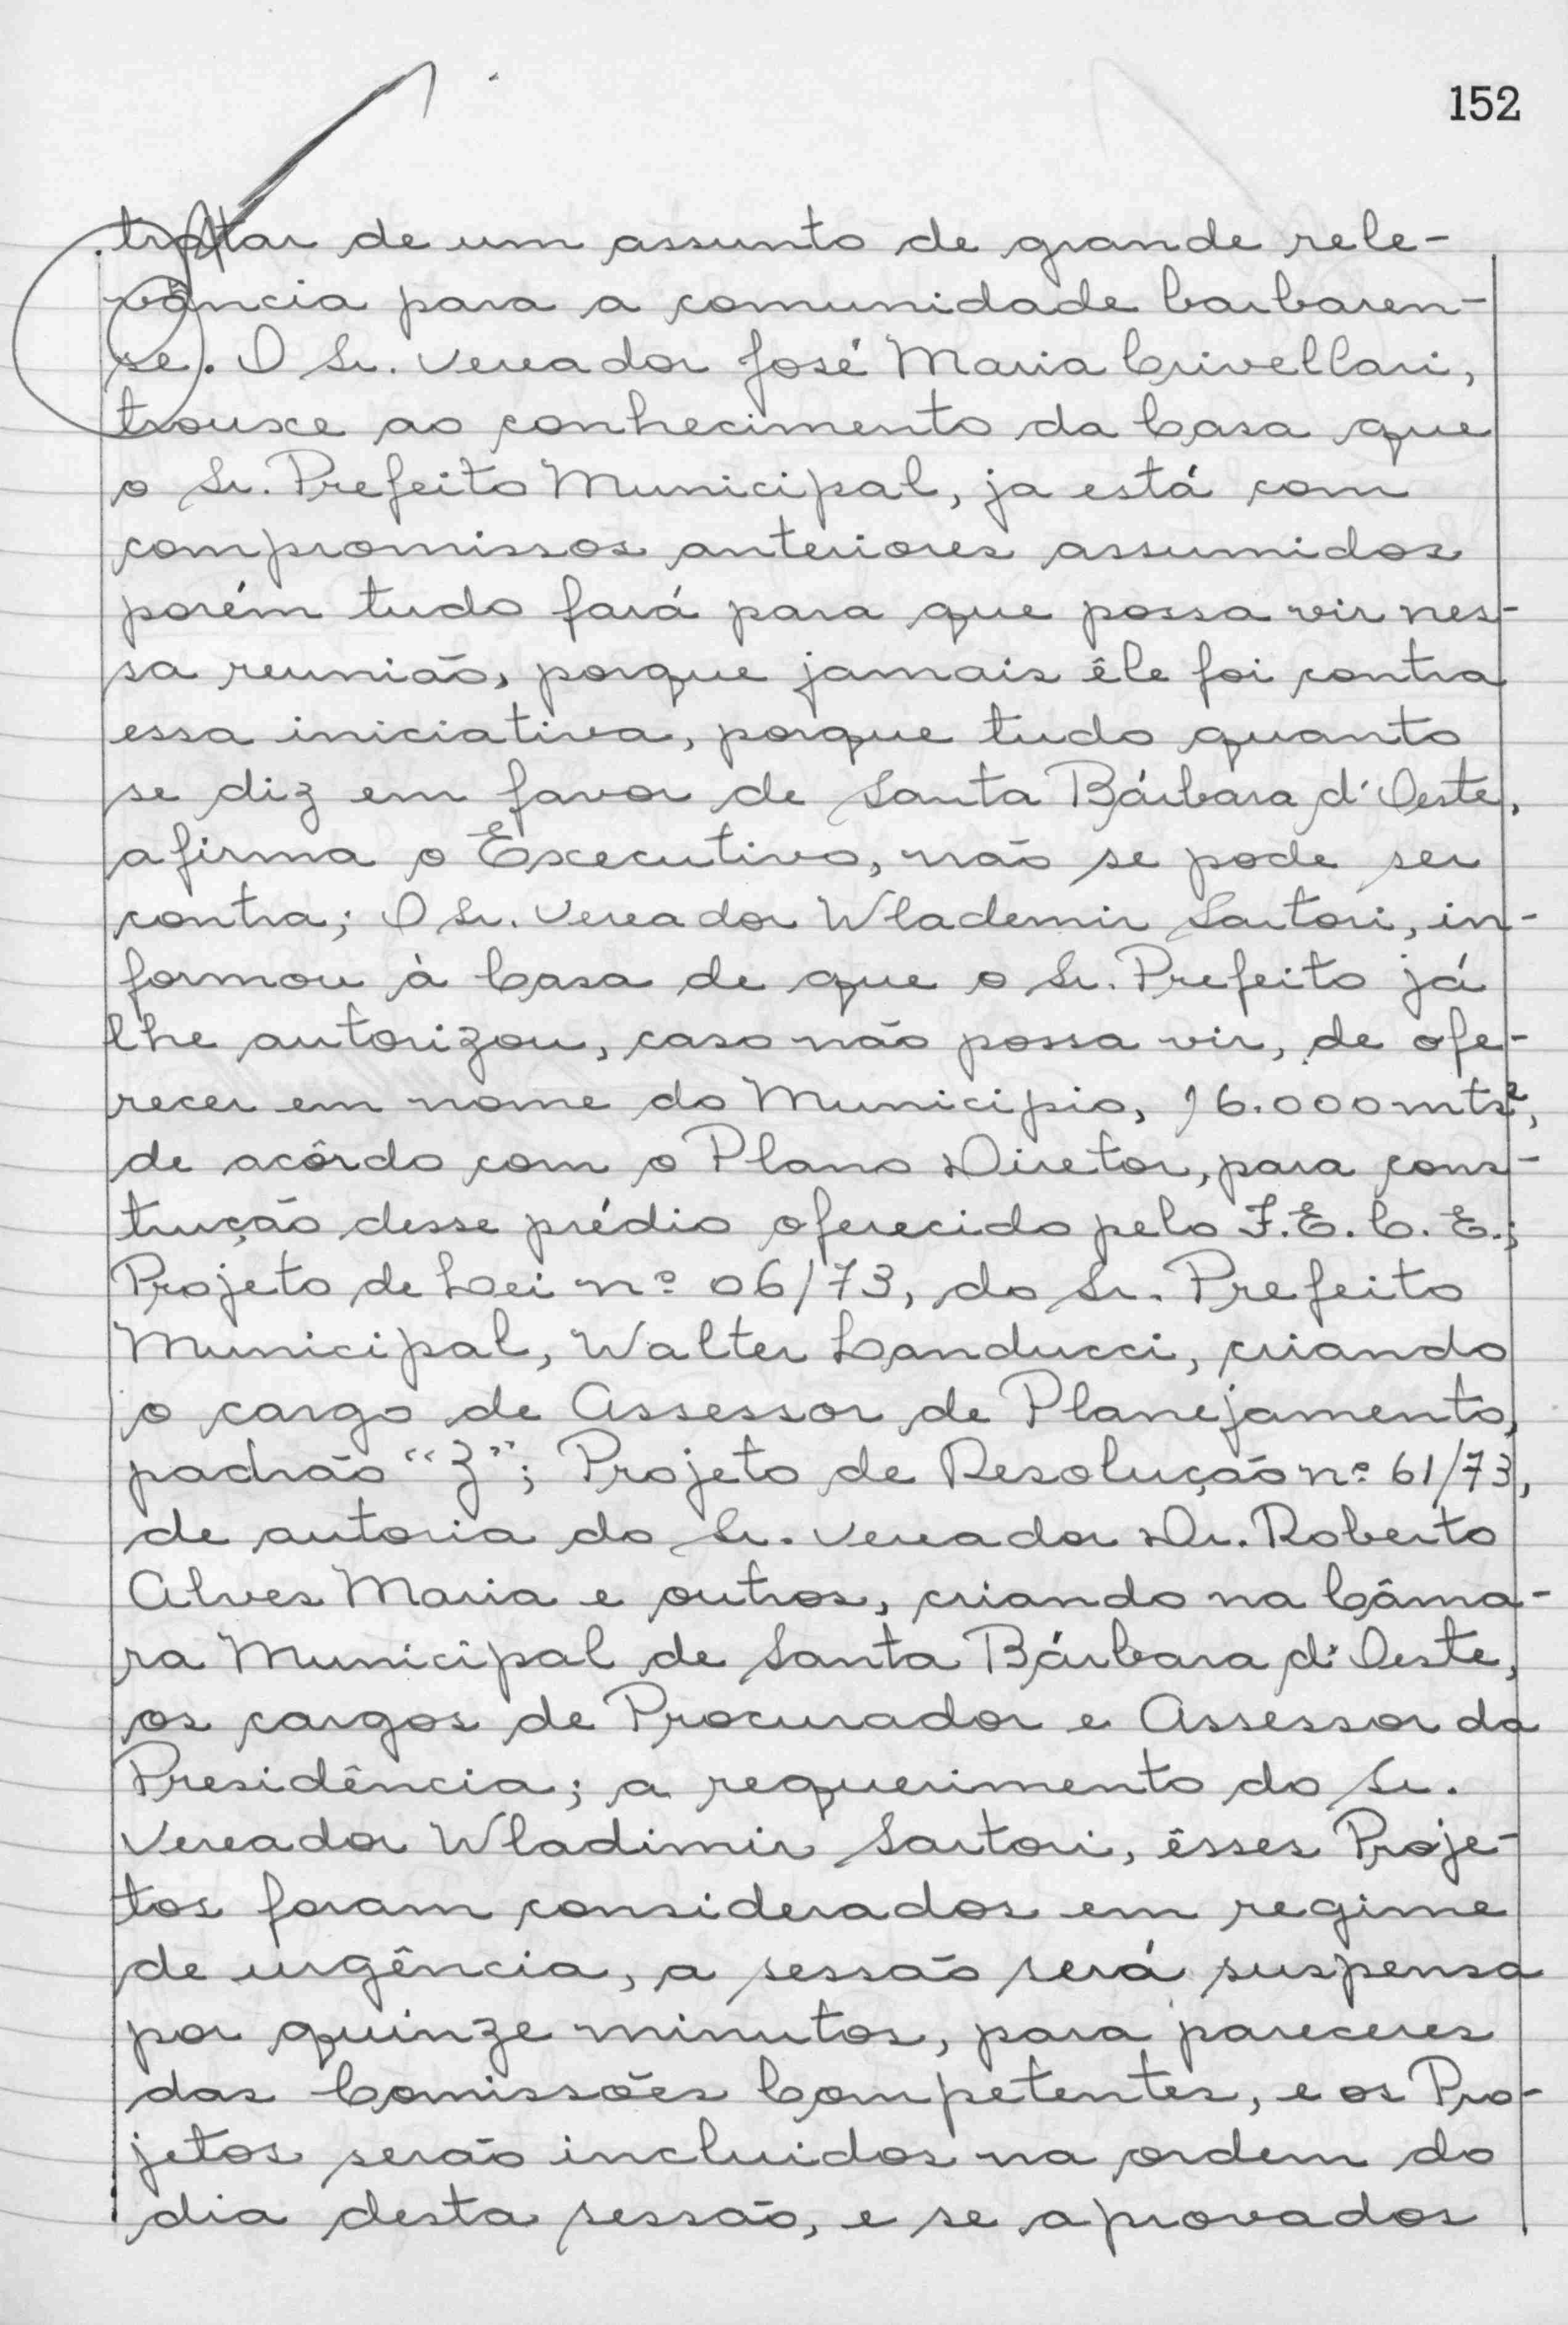 152
tratar de um assunto de grande rele-
vância para a comunidade barbaren-
se. O Sr. Vereador José Maria Crivellari,
trouxe ao conhecimento da Casa que
o Sr. Prefeito Municipal, ja está com
compromissos anteriores assumidos
porém tudo fará para que possa vir nes-
sa reunião, porque jamais êle foi contra
essa iniciativa, porque tudo quanto
se diz em favor de Santa Bárbara d'Oeste,
afirma o Executivo, não se pode ser
contra; O Sr. Vereador Wlademir Sartori, in-
formou à Casa de que o Sr. Prefeito já
lhe autorizou, caso não possa vir, de ofe-
recer em nome do Municipio, 16.000 mts²,
de acôrdo com o Plano Diretor, para cons-
trução desse prédio oferecido pelo F.E.C.E.;
Projeto de Lei nº 06/73, do Sr. Prefeito
Municipal, Walter Landucci, criando
o cargo de Assessor de Planejamento,
padrão "Z"; Projeto de Resolução nº 61/73,
de autoria do Sr. Vereador Dr. Roberto
Alves Maria e outros, criando na Câma-
ra Municipal de Santa Bárbara d'Oeste,
os cargos de Procurador e Assessor da
Presidência; a requerimento do Sr.
Vereador Wladimir Sartori, êsses Proje-
tos foram considerados em regime
de urgência, a sessão será suspensa
por quinze minutos, para pareceres
das Comissões Competentes, e os Pro-
jetos serão incluidos na ordem do
dia desta sessão, e se aprovados